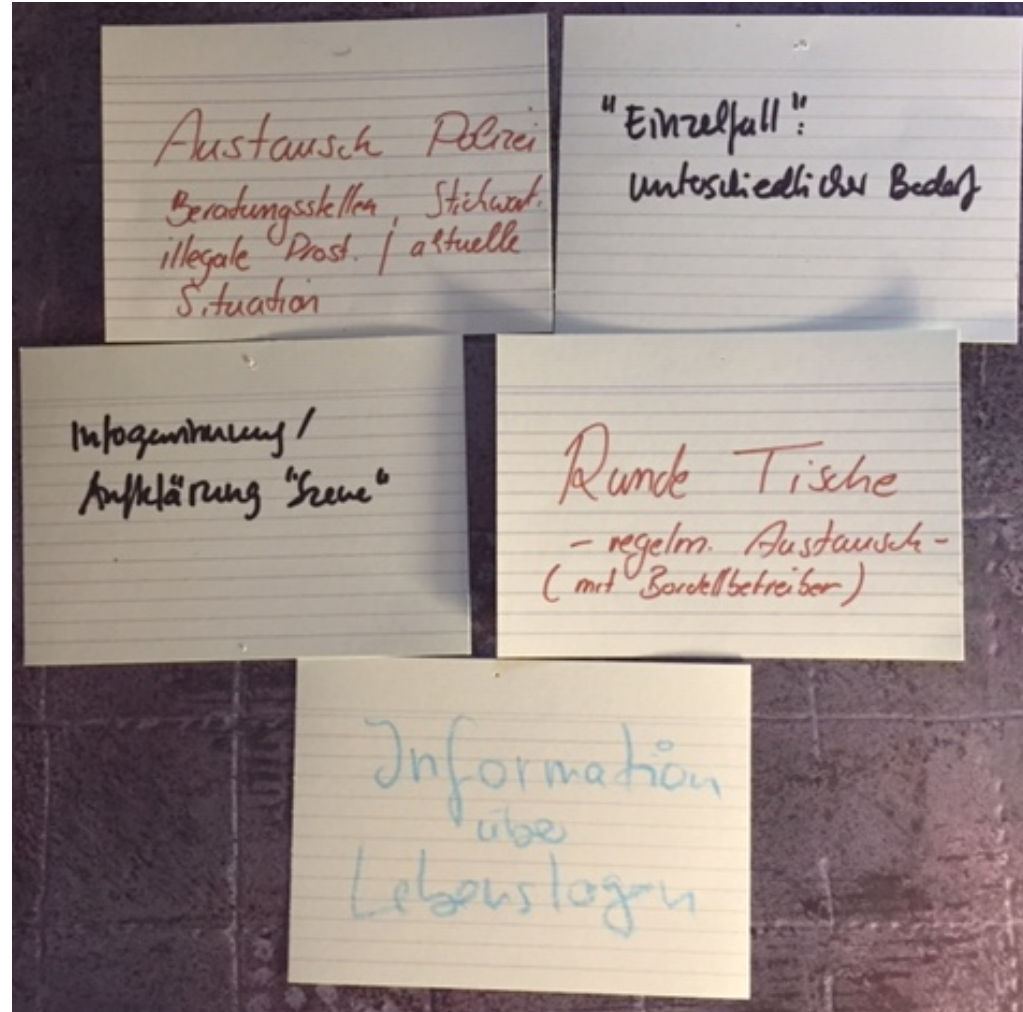 Austausch Polizei
Beratungsstellen, Stichwort.
illegale Prost. / aktuelle
Situation
"Einzelfall":
unterschiedlicher Bedarf
Infogewinnung /
Aufklärung "Szene"
Runde Tische
- regelm. Austausch -
(mit Bordellbetreiber)
Information
über
Lebenslagen